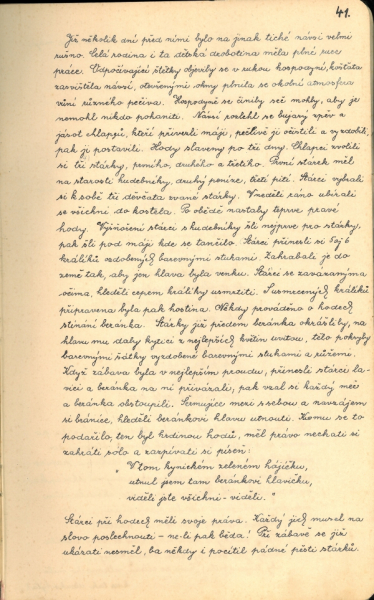 41.
Již několik dní před nimi bylo na jinak tiché návsi velmi
rušno. Celá rodina i ta dětská drobotina měla plné ruce
práce. Odpočívající štětky objevily se v rukou hospodyní, košťata
zasvištěla návsí, otevřenými okny plnula se okolní atmosféra
vůní různého pečiva. Hospodyně se činily seč mohly, aby je
nemohl nikdo pohaniti. Návsí rozlehl se bujarý zpěv a
jásot chlapců, kteří přivezli máji, pečlivě ji očistili a vyzdobili,
pak ji postavili. Hody slaveny po tři dny. Chlapci zvolili
si tři stárky, prvního, druhého a třetího. První stárek měl
na starosti hudebníky, druhý peníze, třetí pití. Stárci vybrali
si k sobě tři děvčata zvané stárky. V neděli ráno ubírali
se všichni do kostela. Po obědě nastaly teprve pravé
hody. Vyšňoření stárci s hudebníky šli nejprve pro stárky,
pak šli pod máji kde se tančilo. Stárci přinesli si 5 až 6
králíků ozdobených barevnými stuhami. Zahrabali je do
země tak, aby jen hlava byla venku. Stárci se zavázanýma
očima, hleděli cepem králíky usmrtiti. Z usmrcených králíků
připravena byla pak hostina. Někdy prováděno o hodech
stínání beránka. Stárky již předem beránka okrášlily, na
hlavu mu daly kytici z nejlepších květin uvitou, tělo pokryly
barevnými šátky vyzdobené barevnými stuhami a růžemi.
Když zábava byla v nejlepším proudu, přinesli stárci la-
vici a beránka na ni přivázali, pak vzal si každý meč
a beránka obstoupili. Šermujíce mezi sebou a navzájem
si bráníce, hleděli beránkovi hlavu utnouti. Komu se to
podařilo, ten byl hrdinou hodů, měl právo nechati si
zahráti sólo a zazpívati si píseň:
„V tom kynickém zeleném hájíčku,
utnul jsem tam beránkovi hlavičku,
viděli jste všichni - viděli."
Stárci při hodech měli svoje práva. Každý jich musel na
slovo poslechnouti - ne-li pak běda! Při zábavě se již
ukázati nesměl, ba někdy i pocítil pádné pěsti stárků.